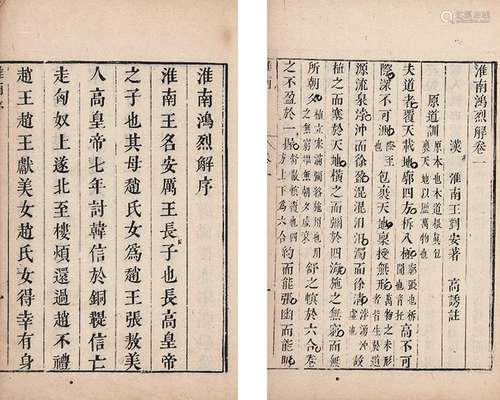 淮南鴻烈解序
淮南王名安厲王長子也長高皇帝
之子也其母趙氏女為趙王張敖美
人高皇帝七年討韓信於銅鞮信亡
走匈奴上遂北至樓煩還過趙不禮
趙王趙王獻美女趙氏女得幸有身
淮南鴻烈解卷一
漢 淮南王劉安著 高誘註
原道訓
原本也本道根真包裹天地以歷萬物也
夫道者覆天載地廓四方柝八極
高不可
際深不可測
包裹天地稟授無形
源流泉浡沖而徐盈混混汩汩濁而徐清
植之而塞於天地橫之而彌於四海施之無窮而無
所朝夕
舒之幎於六合卷
之不盈於一握
約而能張幽而能明